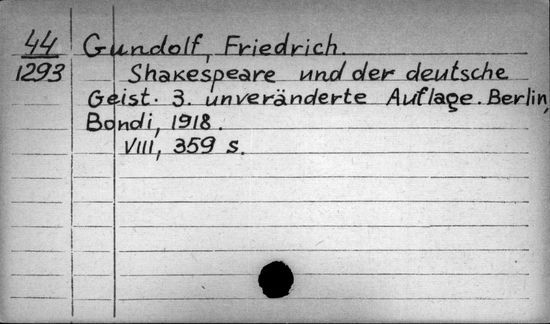 44 Gundolf, Friedrich.
1293 Shakespeare und der deutsche
Geist. 3. unveränderte Auflage. Berlin,
Bondi, 1918.
VIII, 359 S.